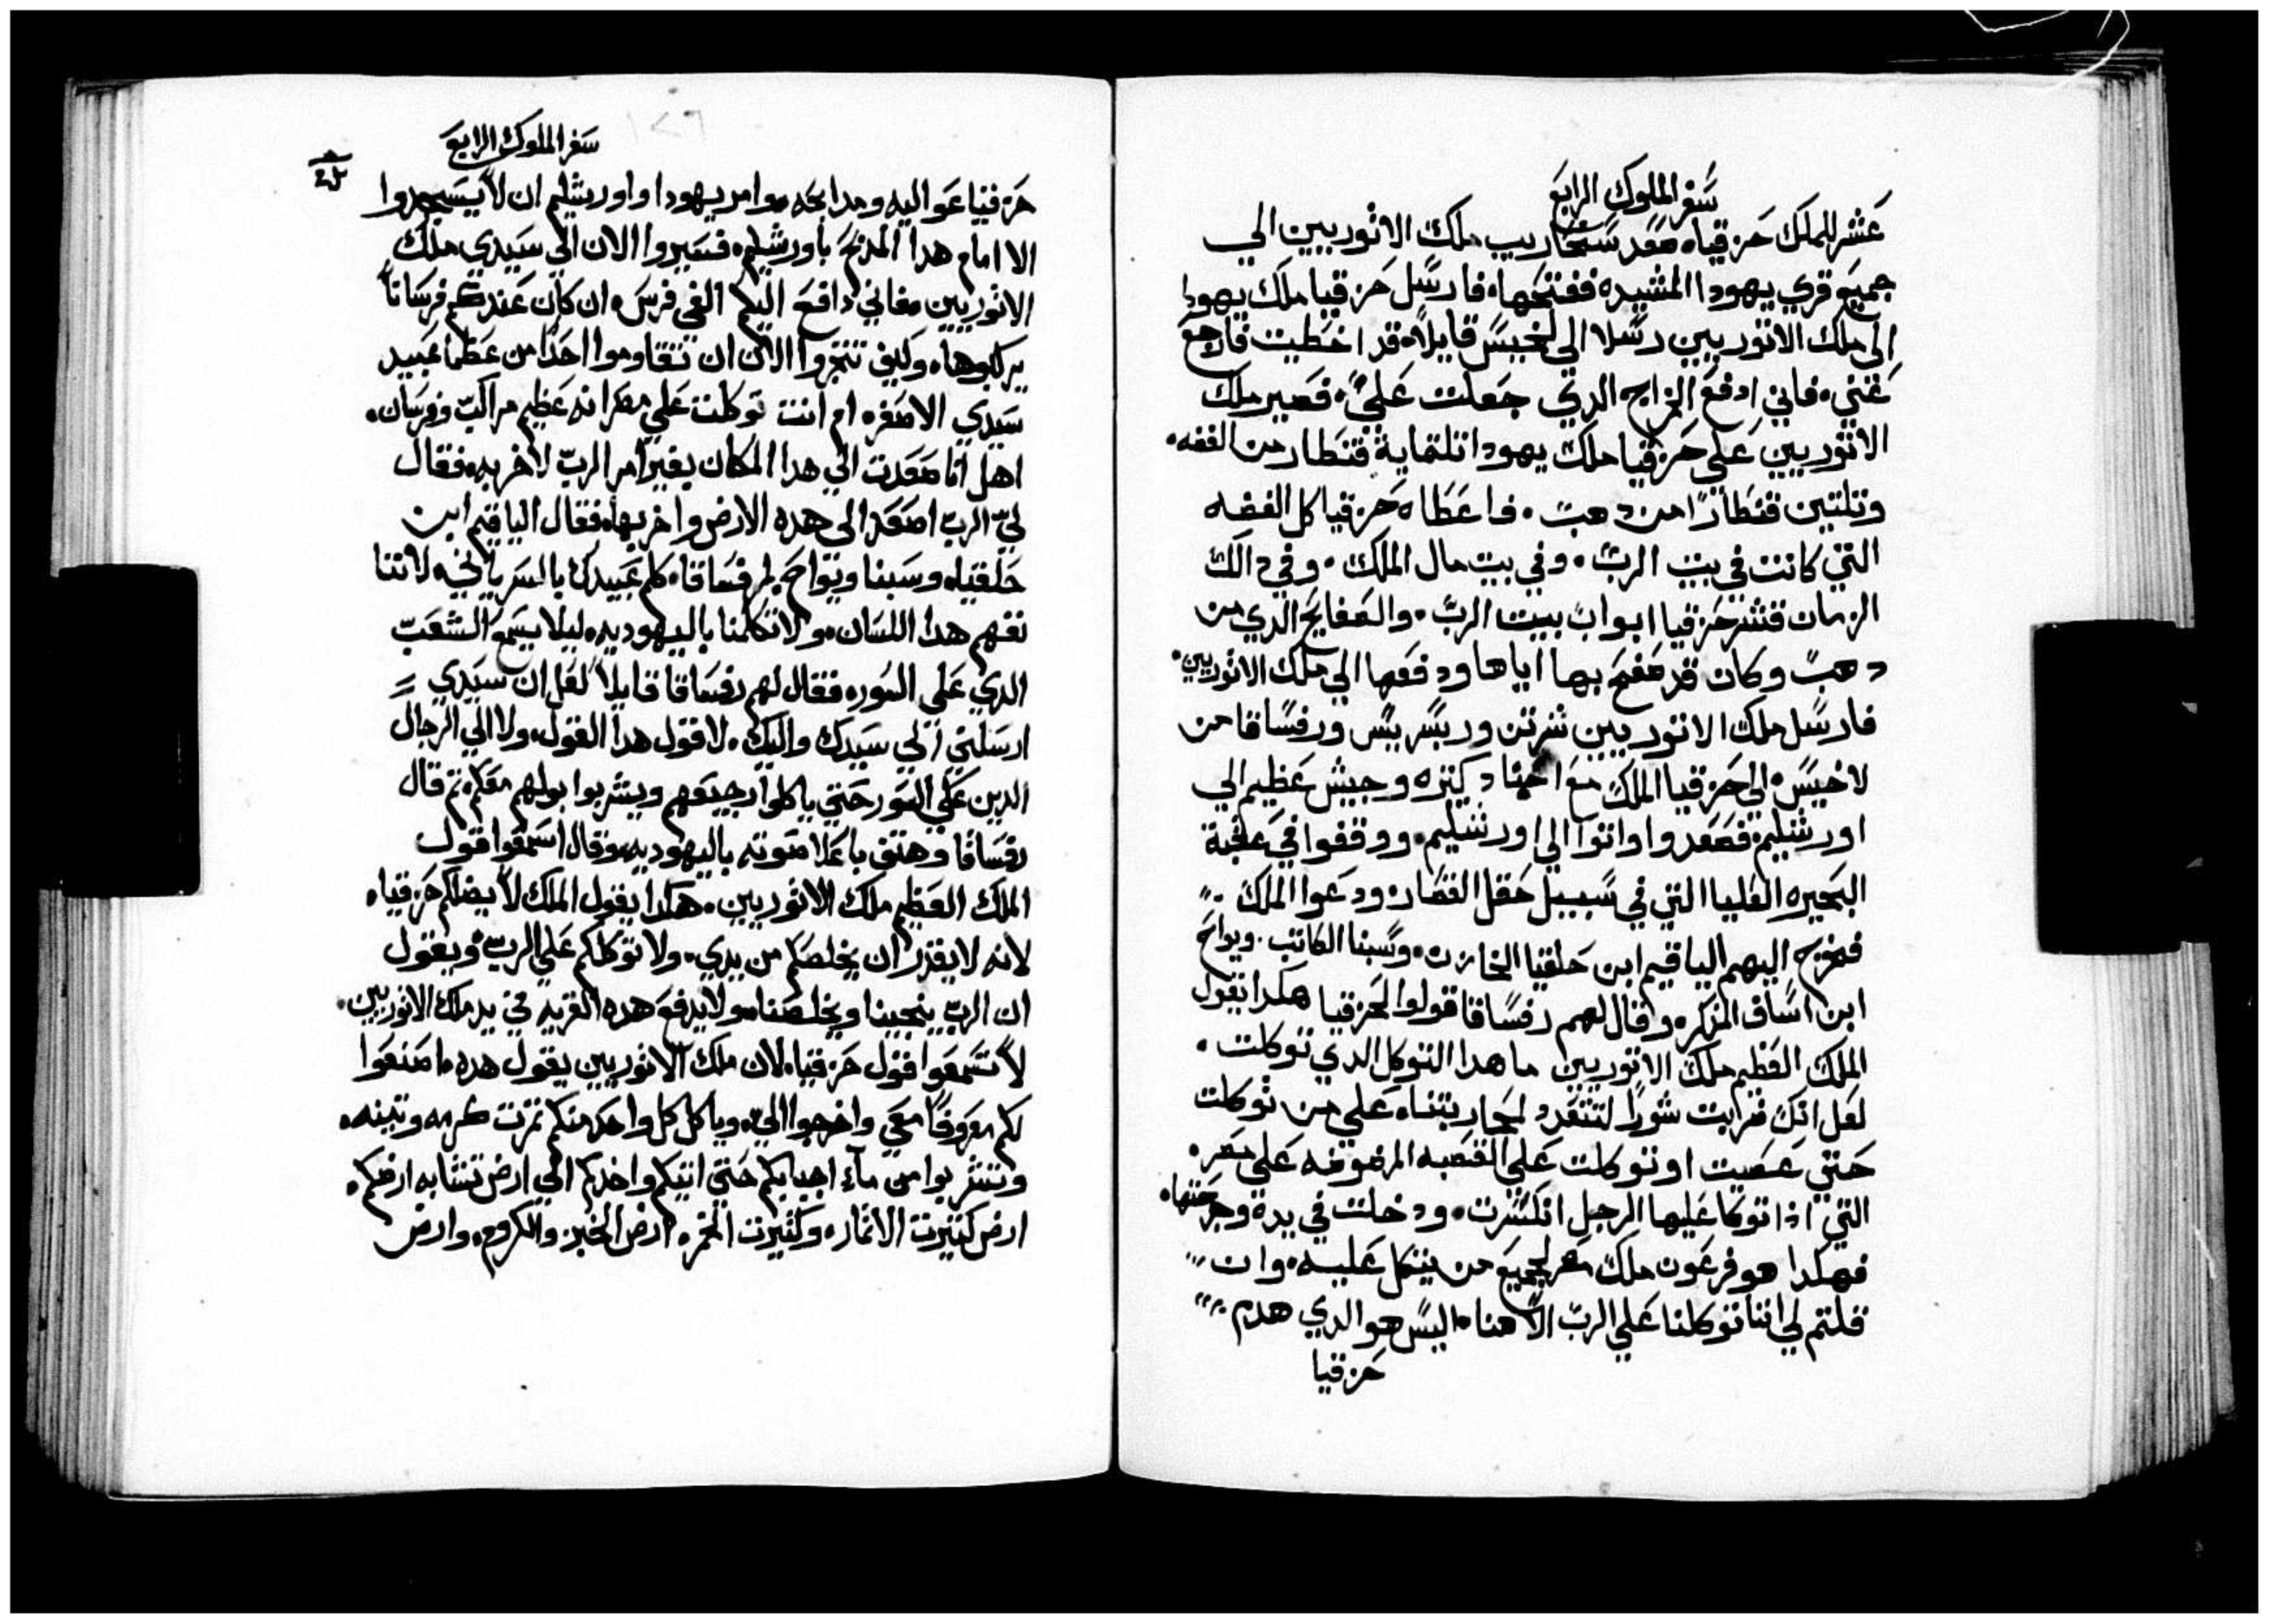 سفر الملوك الرابع
عشر للملك حزقيا، صعد سنحاريب ملك الاثوريين الي
جميع قري يهودا المشيده ففتحها، فارسل حزقيا ملك يهودا
الي ملك الاثوريين رسلا الي لخيس قايلاً، قد اخطيت فارجع
عني، فاني ادفع الخراج الدي جعلت عليّ، فصير ملك
الاثوريين علي حزقيا ملك يهودا تلتماية قنطار من الفضه،
وتلتين قنطارًا من دهب، فاعطاه حزقيا كل الفضه
التي كانت في بيت الربّ، وفي بيت مال الملك، وفي دالك
الزمان قشر حزقيا ابواب بيت الربّ، والصفايح الدي من
دهب وكان قد صفح بها اياها ودفعها الي ملك الاثوريين،
فارسل ملك الاثوريين ترتن وربسريس ورفساقا من
لاخيس، الي حزقيا الملك مع اجناد كتيره وجيش عظيم الي
اورشليم، فصعدوا واتوا الي اورشليم، ووقفوا في
البحيره العليا التي في سبيل حقل القصار، ودعوا الملك،
فخرج اليهم الياقيم ابن حلقيا الخازن، وسبنا الكاتب، ويواح
ابن اساف المذكر، وقال لهم رفساقا قولوا لحزقيا هكدا يقول
الملك العظيم ملك الاثوريين ما هدا التوكل الدي توكلت،
لعل انك شورًا لتتعدد لمحاربتنا، علي من توكلت
حتي عصيت اوتوكلت علي القصبه المرضوضه علي مصر،
التي ادا توكا عليها الرجل انكسرت، ودخلت في يده وجرحتها،
فهكدا هو فرعون ملك مصر لجميع من يتكل عليه، وان
قلتم لي اننا توكلنا علي الربّ الاهنا، اليس هو الدي هدم
حزقيا
سفر الملوك الرابع
حزقيا عواليه ومدابحه، وامر يهودا واورشليم ان لا يسجدوا
الا امام هدا المدبح باورشليم، فسيروا الان الي سيدي ملك
الاثوريين، فاني دافع اليكم الفي فرس، ان كان عندكم فرسانًا
يركبوها، وكيف تتجروا الان ان تقاوموا احدًا من عظما عبيد
سيدي الاصغر، ام انت توكلت علي مصر انه عظيم مراكب وفرسان،
اهل انا صعدت الي هدا المكان بغير امر الربّ لاخربه، فقال
ليّ الربّ اصعد الي هده الارض واخربها، فقال الياقيم ابن
حلقيا، وسبنا ويواح لرفساقا، كلم عبيدك بالسريانيه لاننا
نفهم هدا اللسان، ولا تكلمنا باليهوديه، ليلا يسمع الشعب
الدي علي السور، فقال لهم رفساقا قايلاً لعل ان سيدي
ارسلني الي سيدك واليك، لاقول هدا القول، ولا الي الرجال
الدين علي السور حتي ياكلوا رجيعهم ويشربوا بولهم معكم، تم قال
رفساقا وهتف باعلا صوته باليهوديه، وقال اسمعوا قول
الملك العظيم ملك الاثوريين، هكدا يقول الملك لا يضلكم حزقيا،
لانه لا يقدر ان يخلصكم من يدي، ولا توكلكم علي الربّ، ويقول
ان الربّ ينجينا ويخلصنا، ولا يدفع هده القريه في يد ملك الاثوريين،
لا تسمعوا قول حزقيا، لان ملك الاثوريين يقول هده، اصنعوا
لكم معروفًا معي واخرجوا اليّ، وياكل كل واحد منكم تمرت كرمه وتينه،
وتشربوا من مآء اجبابكم حتي اتيكم واخدكم الي ارض تشابه ارضكم،
ارض كتيرت الاتمار، وكتيرت الخمر، ارض الخبز والكروم، وارض